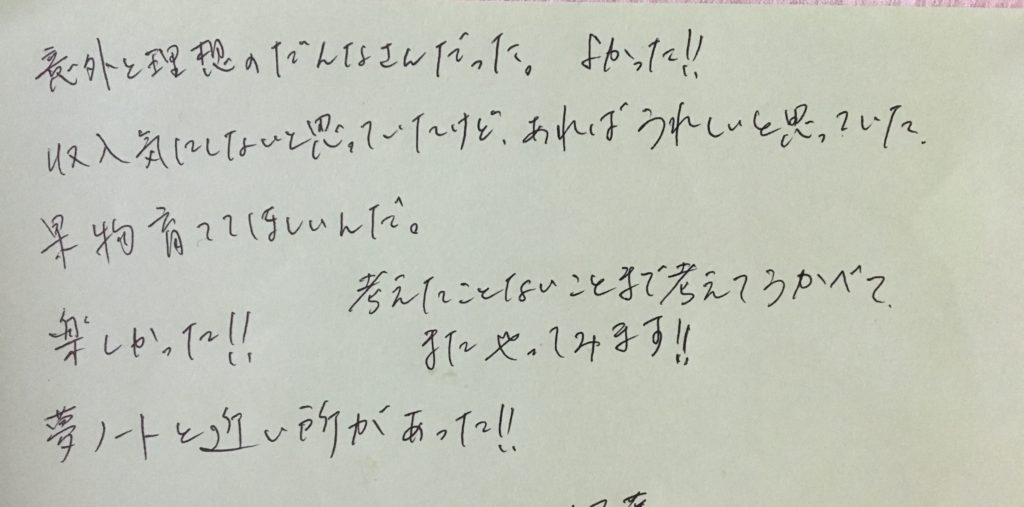 意外と理想のだんなさんだった。 よかった!!
収入気にしないと思っていたけど、あればうれしいと思っていた。
果物育ててほしいんだ。
考えたことないことまで考えてうかべて、
楽しかった!!
またやってみます!!
夢ノートと近い所があった!!